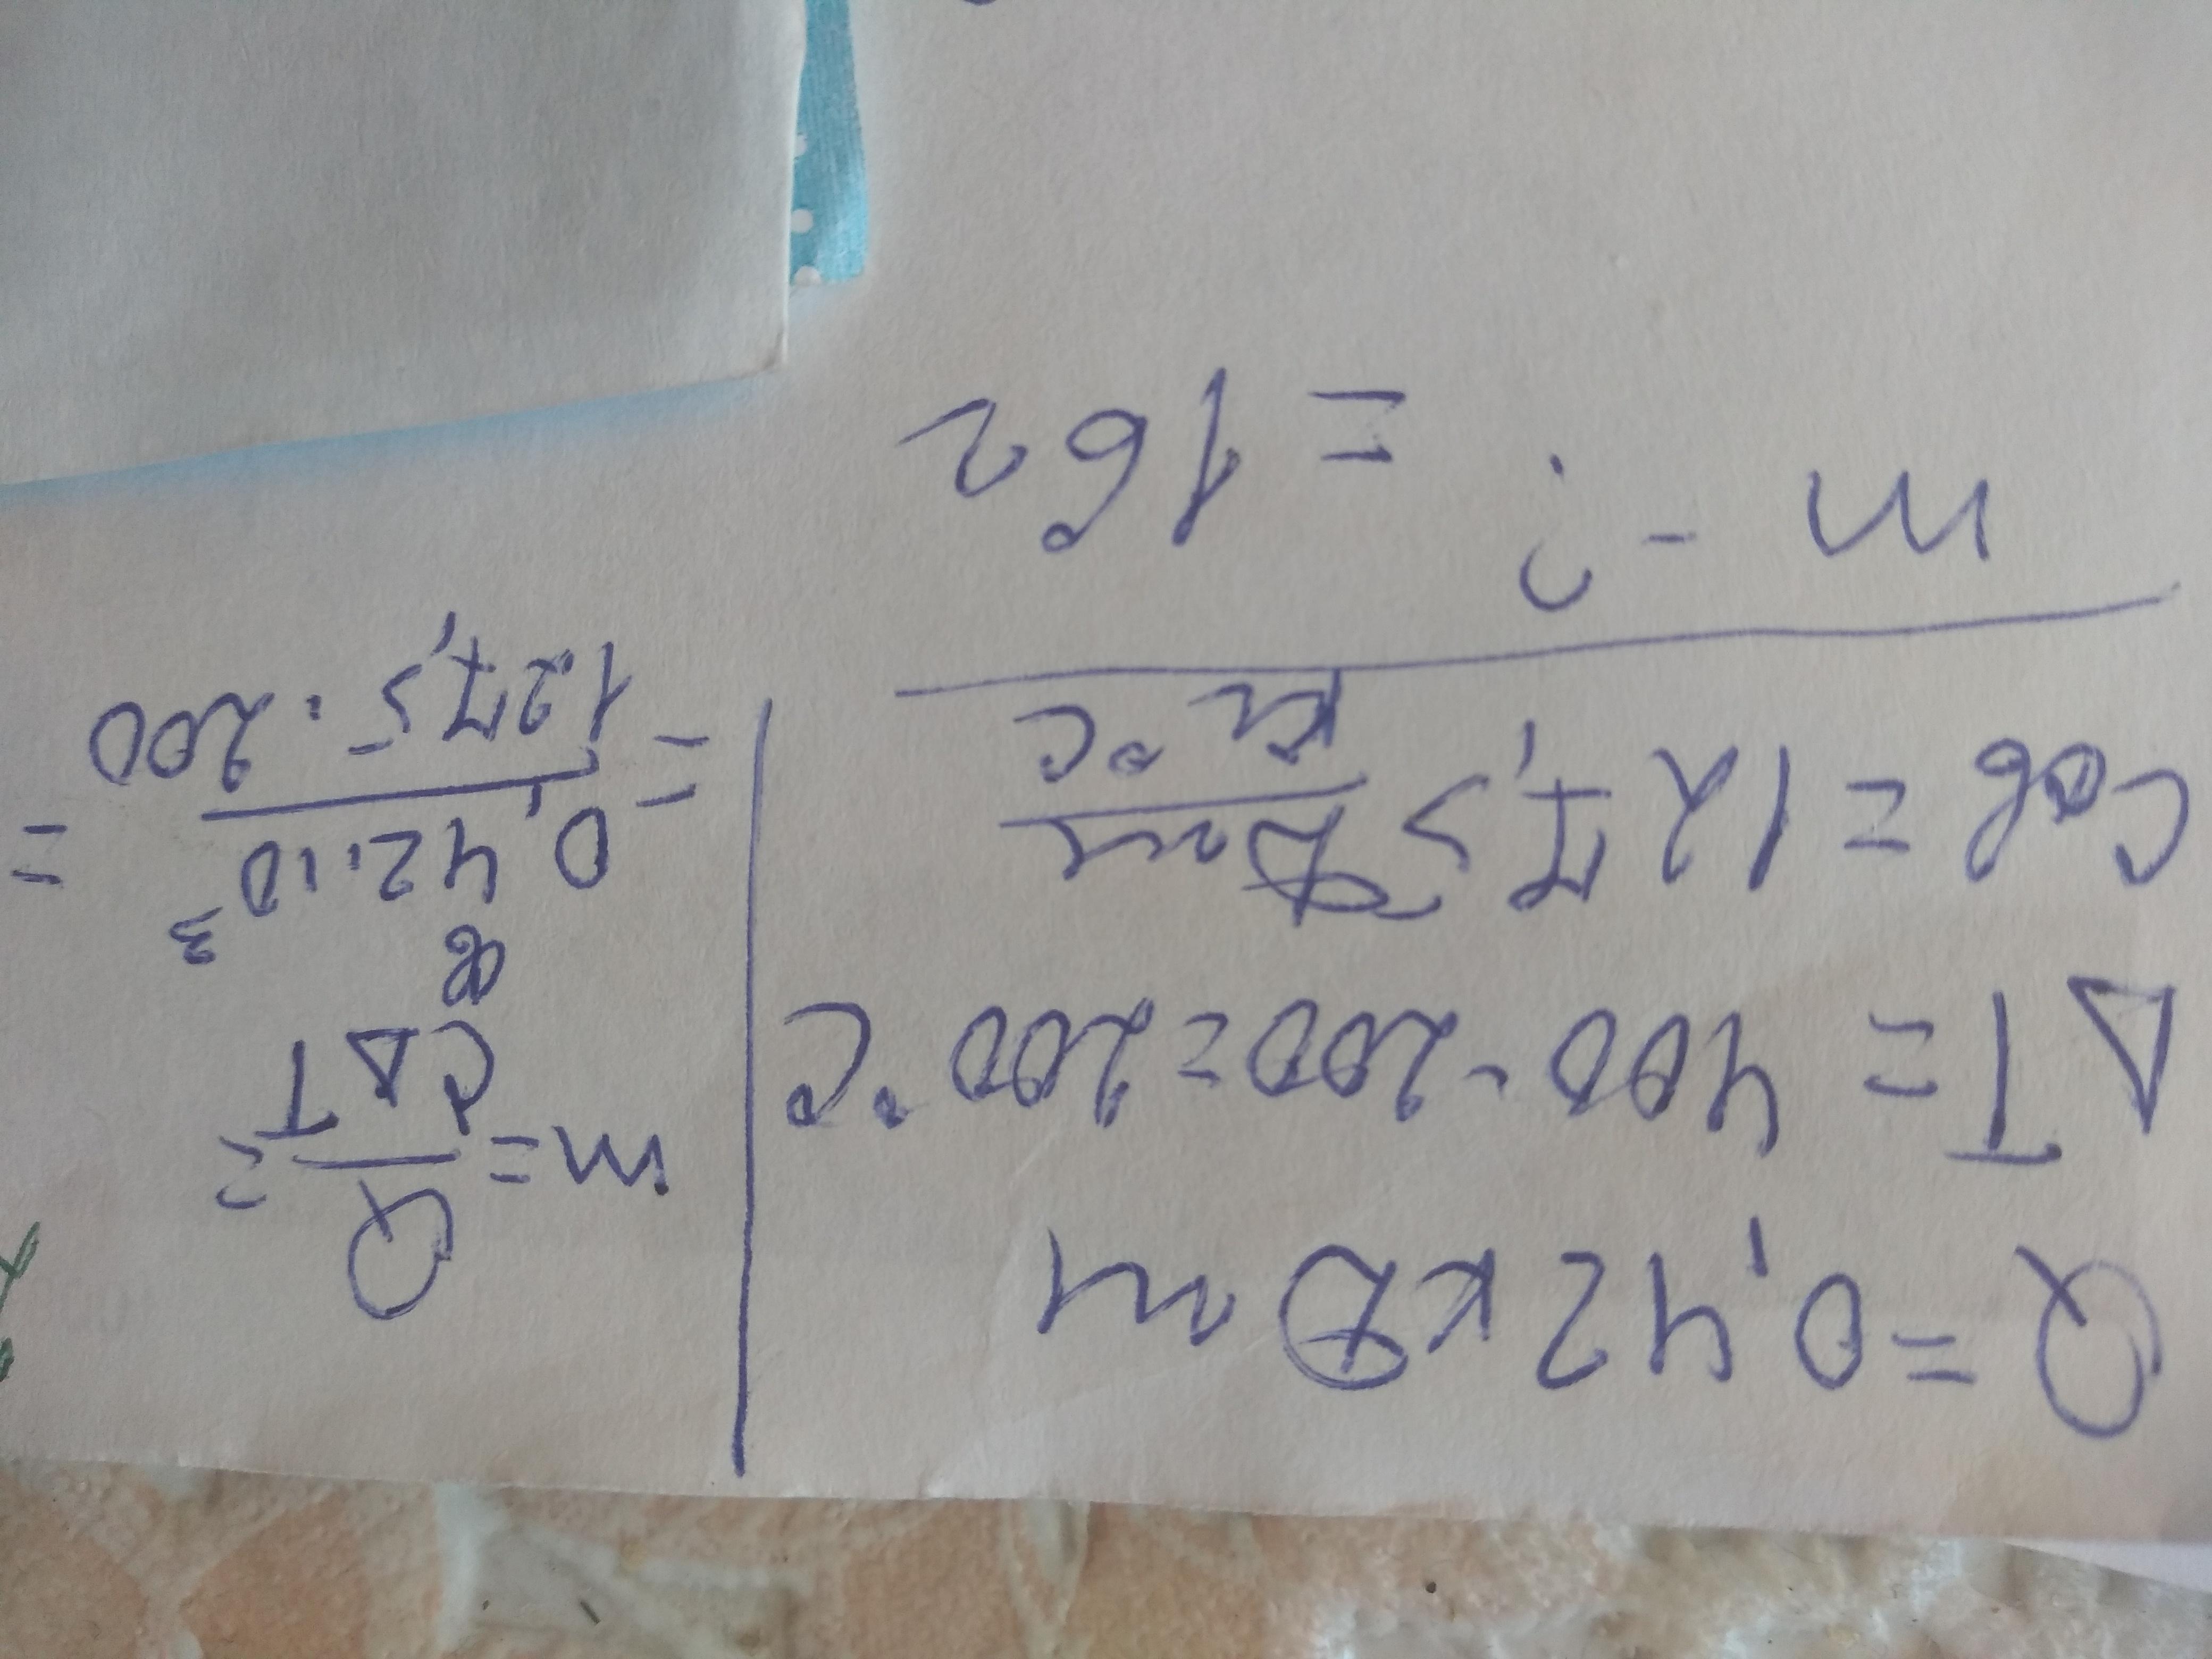 Q = 0,42 кДж
ΔT = 400 - 200 = 200 °C
Cсв = 127,5 Дж/кг °C
m - ? = 16 г
m = Q/CΔT =
= 0,42·10³/127,5 · 200 =